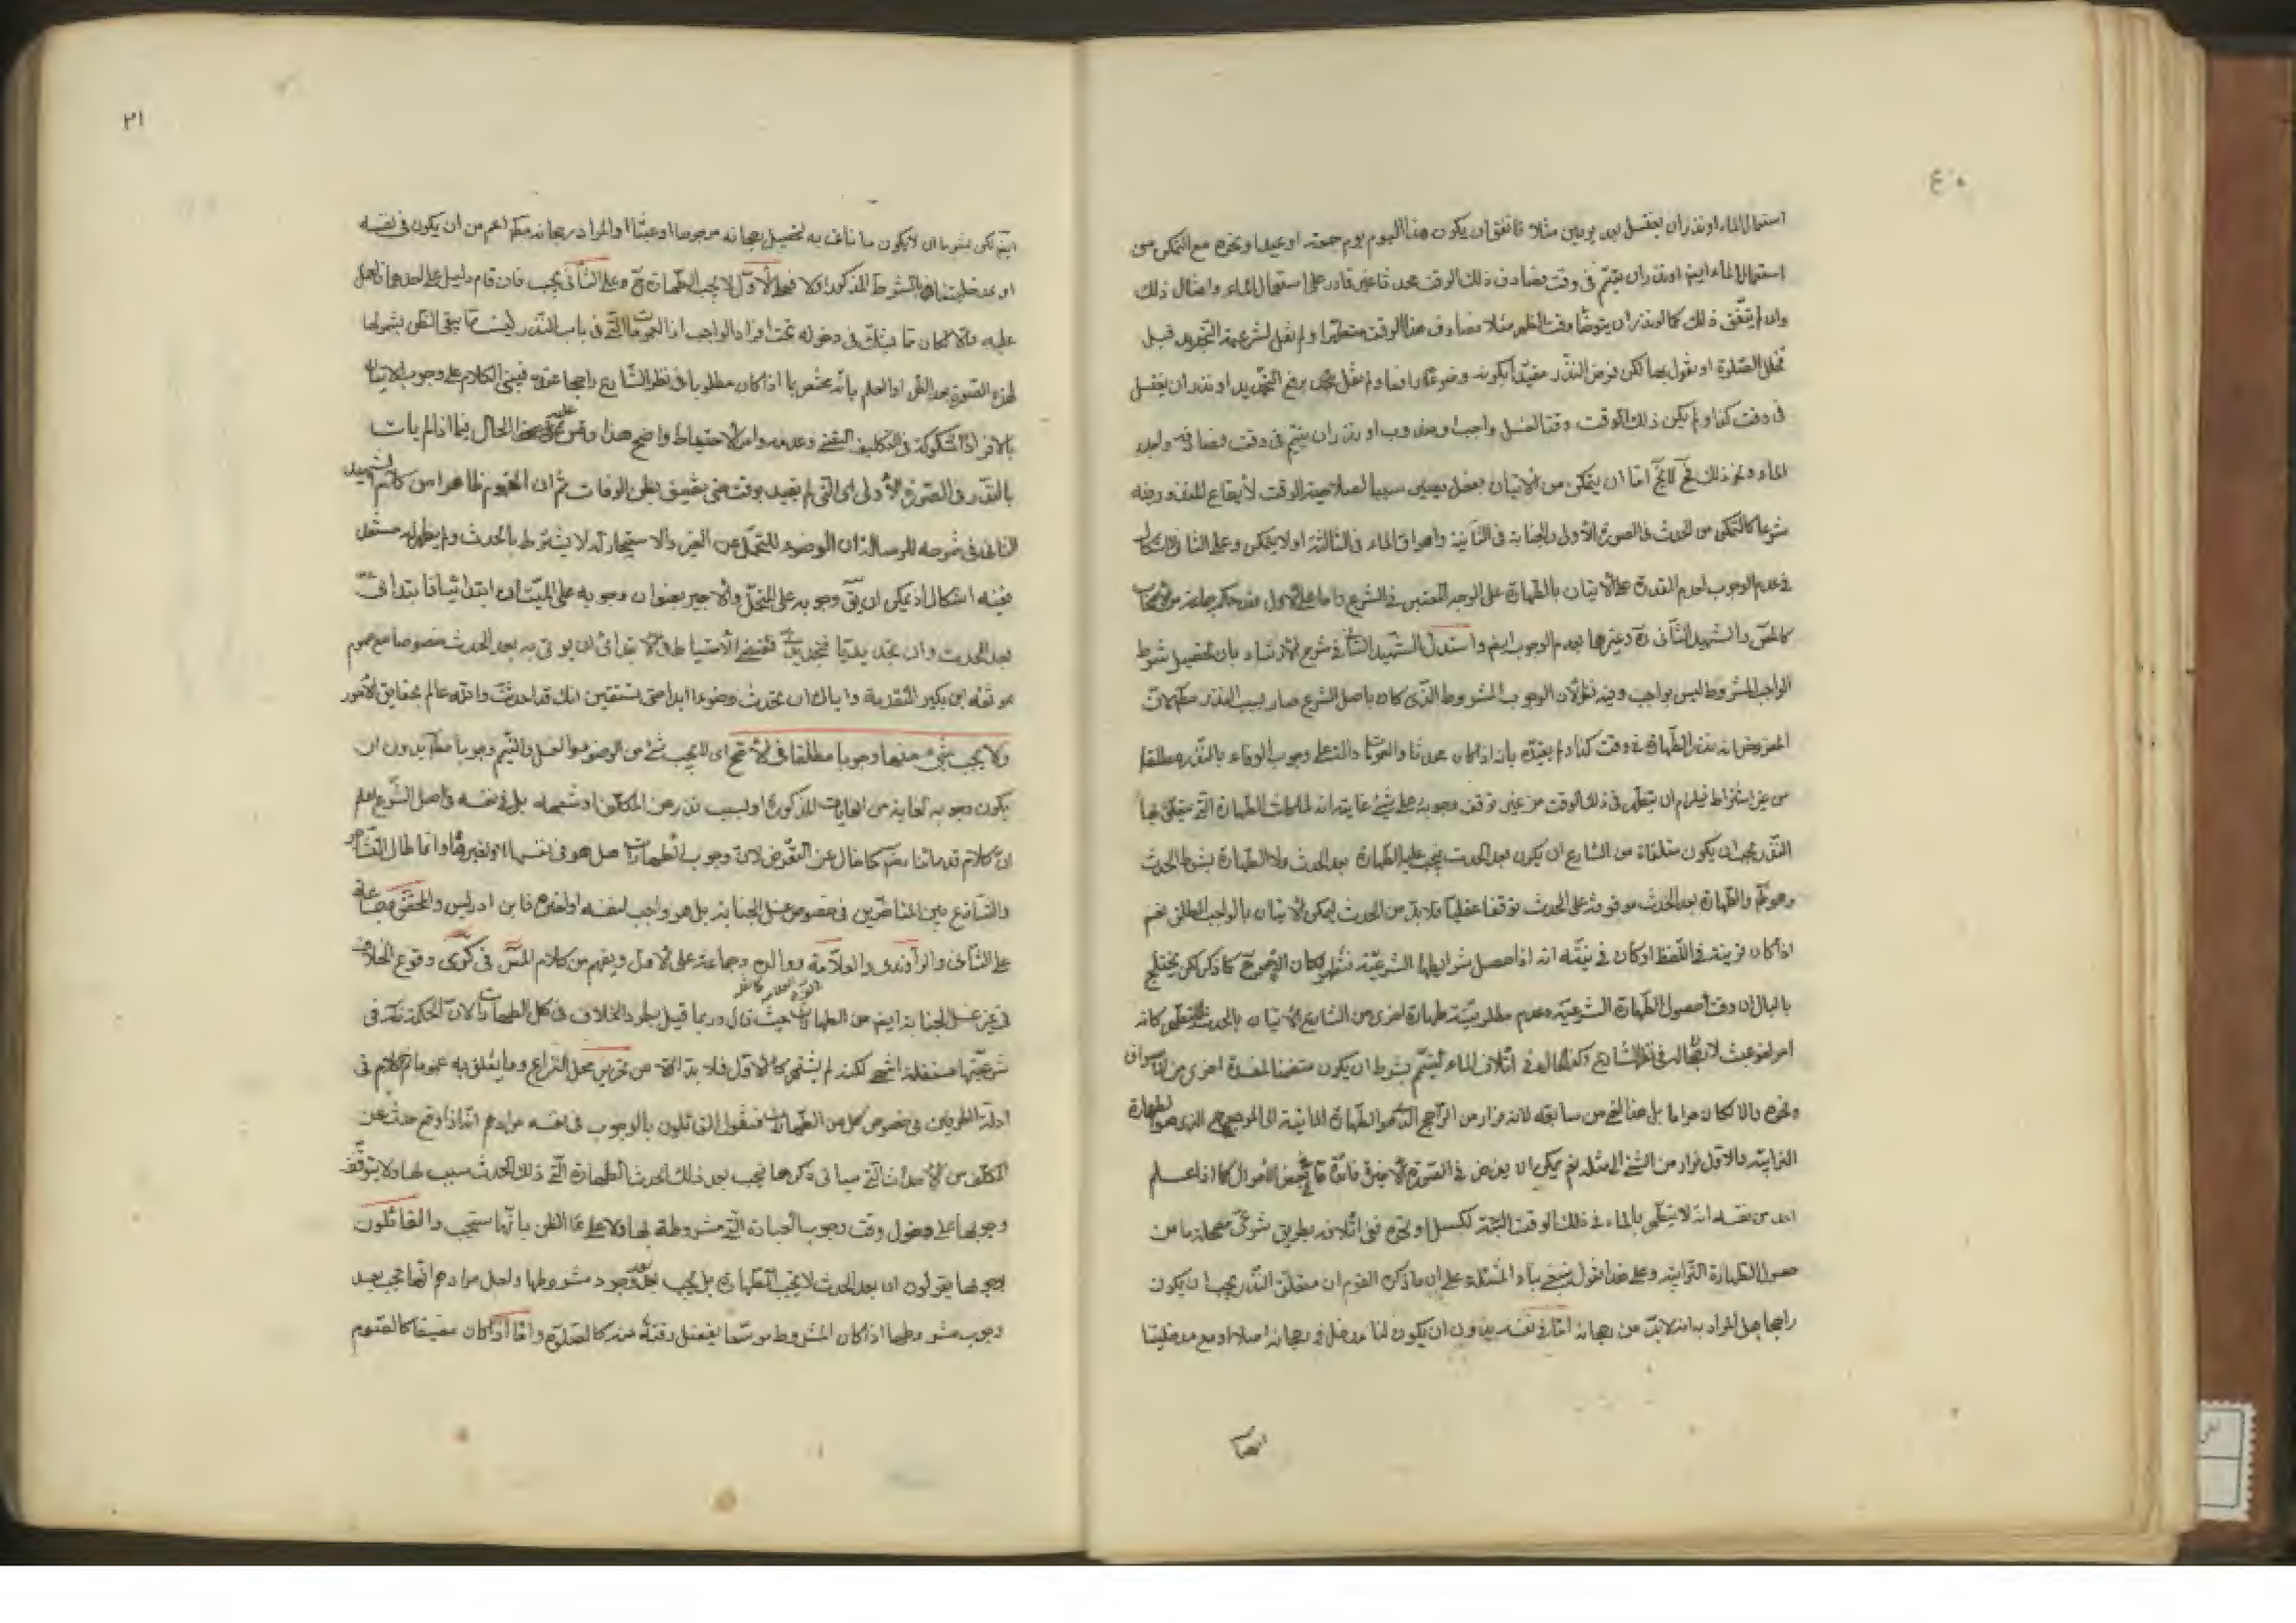 استعمال الماء او نذر ان يغتسل بعد يومين مثلا فاتفق ان يكون هذا اليوم يوم جمعة او عيد او نحوه مع التمكن من
استعمال الماء ايضا او نذر ان يتيمم في وقت فصادف ذلك الوقت محدثا غير قادر على استعمال الماء وامثال ذلك
وان لم يتفق ذلك كما لو نذر ان يتوضأ وقت الظهر مثلا فصادف هذا الوقت متطهرا ولم نقل بشرعية التجديد قبل
تخلل الصلوة او نقول بها لكن فرض النذر مقيدا بكونه وضوءا رافعا ولم نقل برفع التجديد او نذر ان يغتسل
في وقت كذا ولم يكن ذلك الوقت وقتا لغسل واجب او مندوب او نذر ان يتيمم في وقت فصادفه واجد
الماء ونحو ذلك فح لا يخ اما ان يتمكن من الاتيان بفعل يصير سببا لصلاحية الوقت لايقاع المنذور فيه
شرعا كالتمكن من الحدث في الصورة الاولى والجنابة في الثانية واهراق الماء في الثالثة او لا يتمكن وعلى الثاني لا اشكال
في عدم الوجوب لعدم القدرة على الاتيان بالطهارة على الوجه المعتبر في الشرع واما على الاول فقد حكم جماعة من الاصحاب
كالمص والشهيد الثاني ره وغيرهما بعدم الوجوب ايضا واستدل الشهيد الثاني في شرح الارشاد بان تحصيل شرط
الواجب المشروط ليس بواجب وفيه نظر لان الوجوب المشروط الذي كان باصل الشرع صار بسبب النذر مطلقا لان
المفروض انه نذر الطهارة في وقت كذا ولم يقيده بانه اذا كان محدثا والعمومات دالة على وجوب الوفاء بالنذر مطلقا
من غير اشتراط فيلزم ان يتطهر في ذلك الوقت من غير توقف وجوبه على شيء غايته انه لما كانت الطهارة التي يتعلق بها
النذر يجب ان يكون متلقاة من الشارع ان يكون بعد الحدث يجب عليه الطهارة بعد الحدث ولا الطهارة بشرط الحدث
وجوبه والطهارة بعد الحدث موقوفة على الحدث توقفا عقليا فلا بد من الحدث ليمكن الاتيان بالواجب المطلق نعم
اذا كان قرينة في اللفظ او كان في نيته انه اذا حصل شرايطها الشرعية فتطهر لكان الامر كما ذكر لكن يختلج
بالبال ان وقت حصول الطهارة الشرعية وعدم مطلوبية طهارة اخرى من الشارع الاتيان بالحدث للتطهر كانه
امر لغو عبث لا رجحان له في نظر الشارع وكذا الحال في اتلاف الماء ليتيمم بشرط ان يكون متضمنا لمفسدة اخرى من اسراف
ونحوه والا لكان حراما بل هذا اقبح من سابقه لانه فرار من الراجح الذي هو الطهارة المائية الى المرجوح الذي هو الطهارة
الترابية والاول فرار من الشيء الى مثله نعم يمكن ان يفرض في الصورة الاخيرة فائدة في بعض الاحوال كما اذا علم
احد من نفسه انه لا يتطهر بالماء في ذلك الوقت البتة لكسل او نحوه ففي اتلافه بطريق شرعي مصلحة ما من
حصول الطهارة الترابية وعلى هذا نقول ينبغي بناء المسئلة على ان ما ذكره القوم ان متعلق النذر يجب ان يكون
راجحا هل المراد به انه لا بد من رجحانه اما في نفسه بدون ان يكون لنا مدخل في رجحانه اصلا او مع مدخليتنا
ايضا
٢١
ايضا لكن بشرط ان لا يكون ما نأتي به لتحصيل رجحانه مرجوحا او عبثا او المراد رجحانه مطلقا اعم من ان يكون في نفسه
او بمدخليتنا بالشرط المذكور او لا فعلى الاول لا يجب الطهارة ح وعلى الثاني يجب فان قام دليل على احدهما فاعمل
عليه والا كان مما يشك في دخوله تحت افراد الواجب اذ العمومات التي في باب النذر ليست مما يبقى الظن بشمولها
لهذه الصورة بعد الظن او العلم بانه يختص بما اذا كان مطلوبا في نظر الشارع راجحا عنده فيبنى الكلام على وجوب الاتيان
بالافراد المشكوكة في التكليف اليقيني وعدمه وامر الاحتياط واضح هذا وقس عليه بعض الحال فيما اذا لم يات
بالنذر في الصورة الاولى اي التي لم يقيد بوقت حتى يضيق بظن الوفات ثم ان المفهوم ظاهرا من كلام الشهيد
الثاني في شرحه للرسالة ان الوضوء للتحمل عن الغير والاستيجار له لا يشترط بالحدث ولم يظهر له مستند
ففيه اشكال اذ يمكن ان يق وجوبه على المتحمل والاجير بعنوان وجوبه على الميت ان ابتدائيا فابتدائي
بعد الحدث وان تجديديا فتجديدي فمقتضى الاحتياط في الابتدائي ان يؤتى به بعد الحدث خصوصا مع عموم
موثقة ابن بكير المتقدمة واياك ان تحدث وضوءا ابدا حتى تستيقن انك قد احدثت والله عالم بحقايق الامور
ولا يجب شيء منها وجوبا مطلقا في الاصح اي لا يجب شيء من الوضوء والغسل والتيمم وجوبا مطلقا بدون ان
يكون وجوبه لغاية من الغايات المذكورة او لسبب نذر من المكلف او شبهه بل في نفسه في اصل الشرع اعلم
ان كلام قدمائنا رضي كالخال عن التعرض لان وجوب الطهارات هل هو في نفسها او لغيرها وانما طال التشاجر
والتنازع بين المتاخرين في خصوص غسل الجنابة بل هو واجب لنفسه او لغيره فابن ادريس والمحقق وجماعة
على الثاني والراوندي والعلامة ووالده وجماعة على الاول ويفهم من كلام المص في كرى وقوع الخلاف
في غير غسل الجنابة ايضا من الطهارات حيث قال وربما قيل بطرد الخلاف في كل الطهارات لان الحكمة ظاهرة في
شرعيتها مستقلة انتهى لكنه لم يشتهر كالاول فلا بد اولا من تحرير محل النزاع وما يتعلق به عموما ثم الكلام في
ادلة الطرفين في خصوص كل من الطهارات فنقول القائلون بالوجوب في نفسه مرادهم انه اذا وقع حدث عن
المكلف من الاحداث التي سياتي ذكرها فيجب بعد ذلك الحدث الطهارة التي ذلك الحدث سبب لها ولا يتوقف
وجوبها على دخول وقت وجوب العبادة التي مشروطة بها ولا على الظن بانها ستجب والقائلون
بوجوبها يقولون ان بعد الحدث لا يجب الطهارة بل يجب بعد وجود مشروطها ولعل مرادهم انها تجب بعد
وجوب مشروطها اذا كان المشروط موسعا يفضل وقته عنه كالصلوة واما اذا كان مضيقا كالصوم